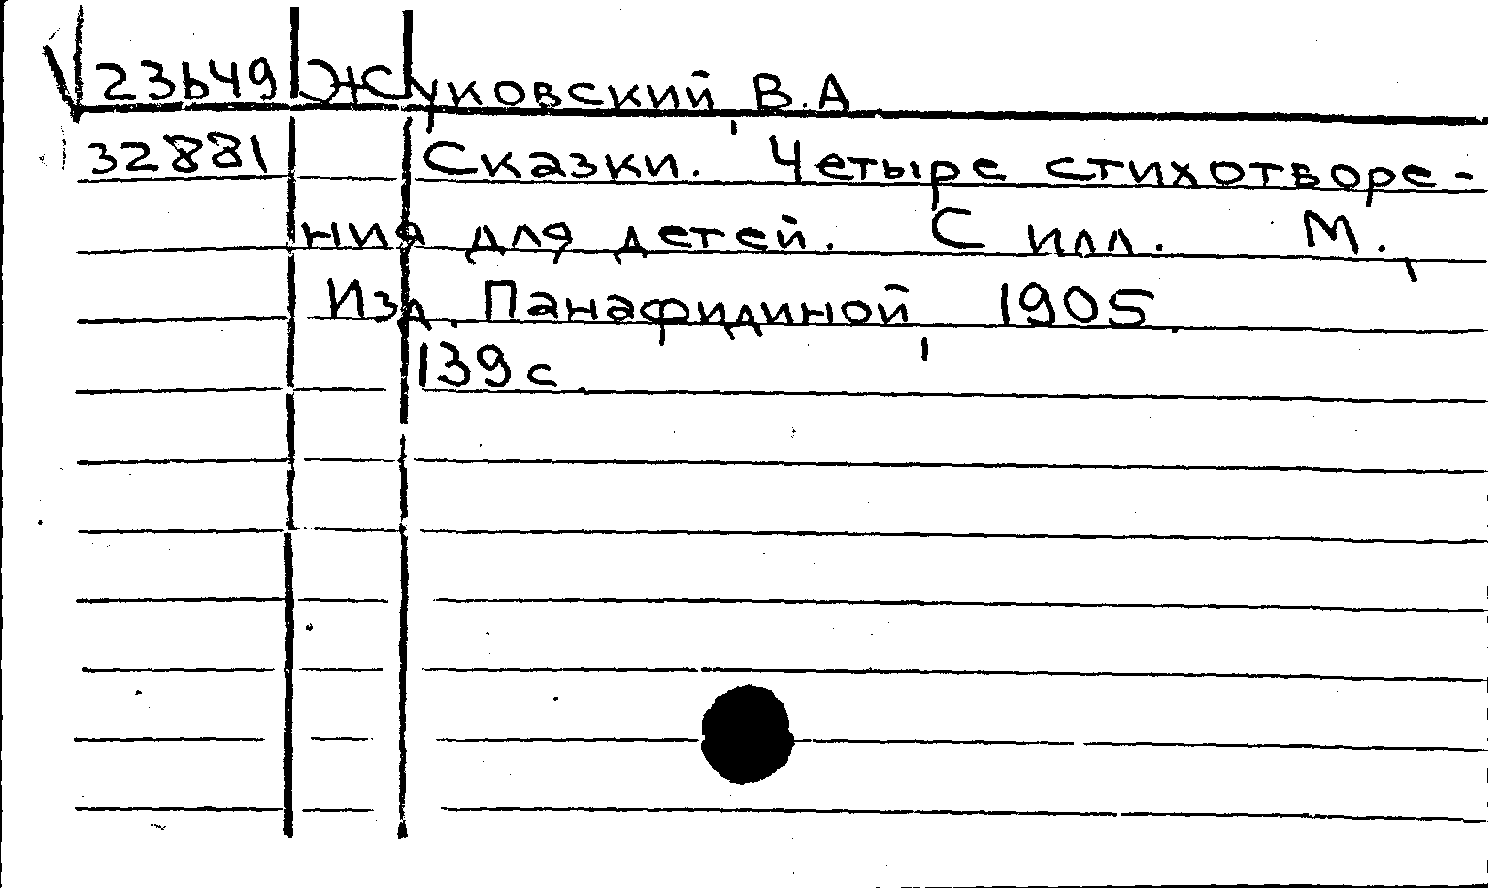 23649 Жуковский, В.А
32881 Сказки. Четыре стихотворе-
ния для детей. С илл. М.,
Изд. Панафидиной, 1905.
139 с.